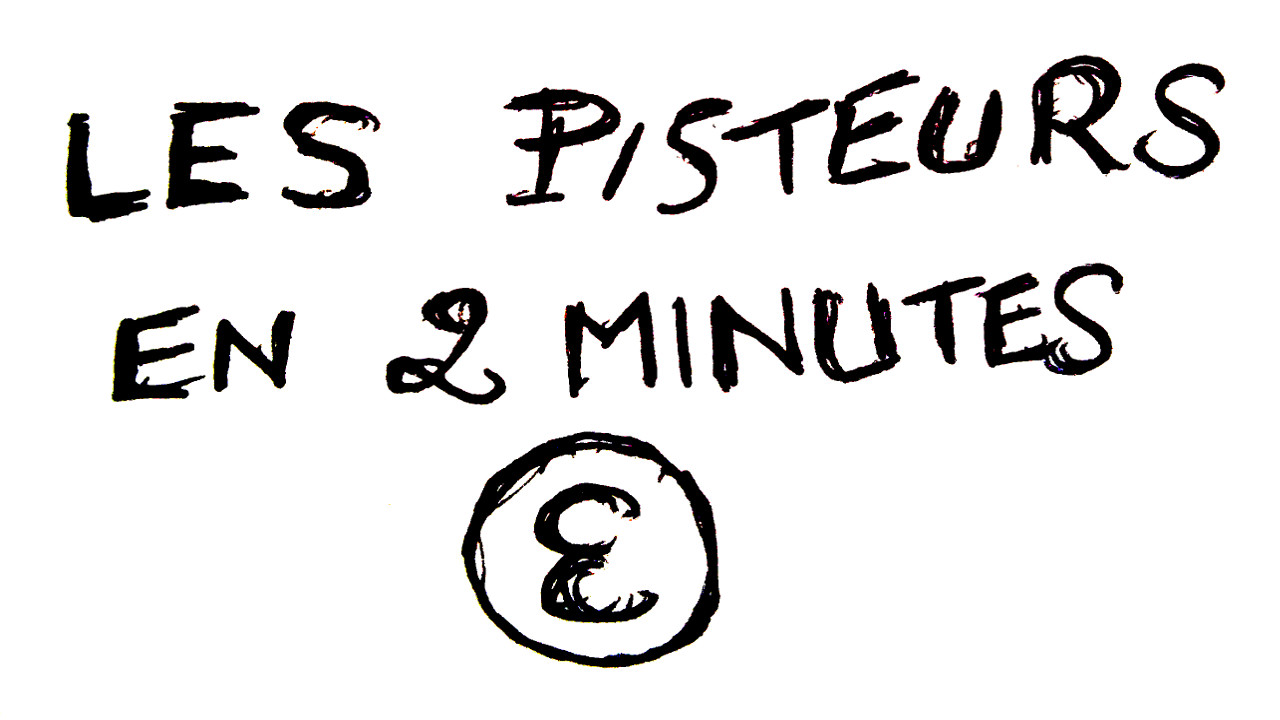 LES PISTEURS
EN 2 MINUTES
Ɛ